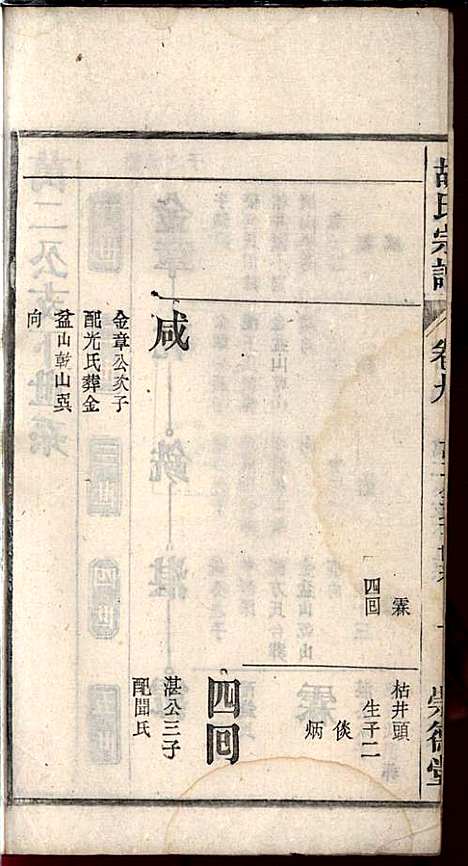 胡氏宗譜
卷九
崇德堂
霖
四回
枯井頭
生子二
倓
炳
四回
湛公三子
配聞氏
咸
金章公次子
配光氏葬金
盆山乾山巽
向